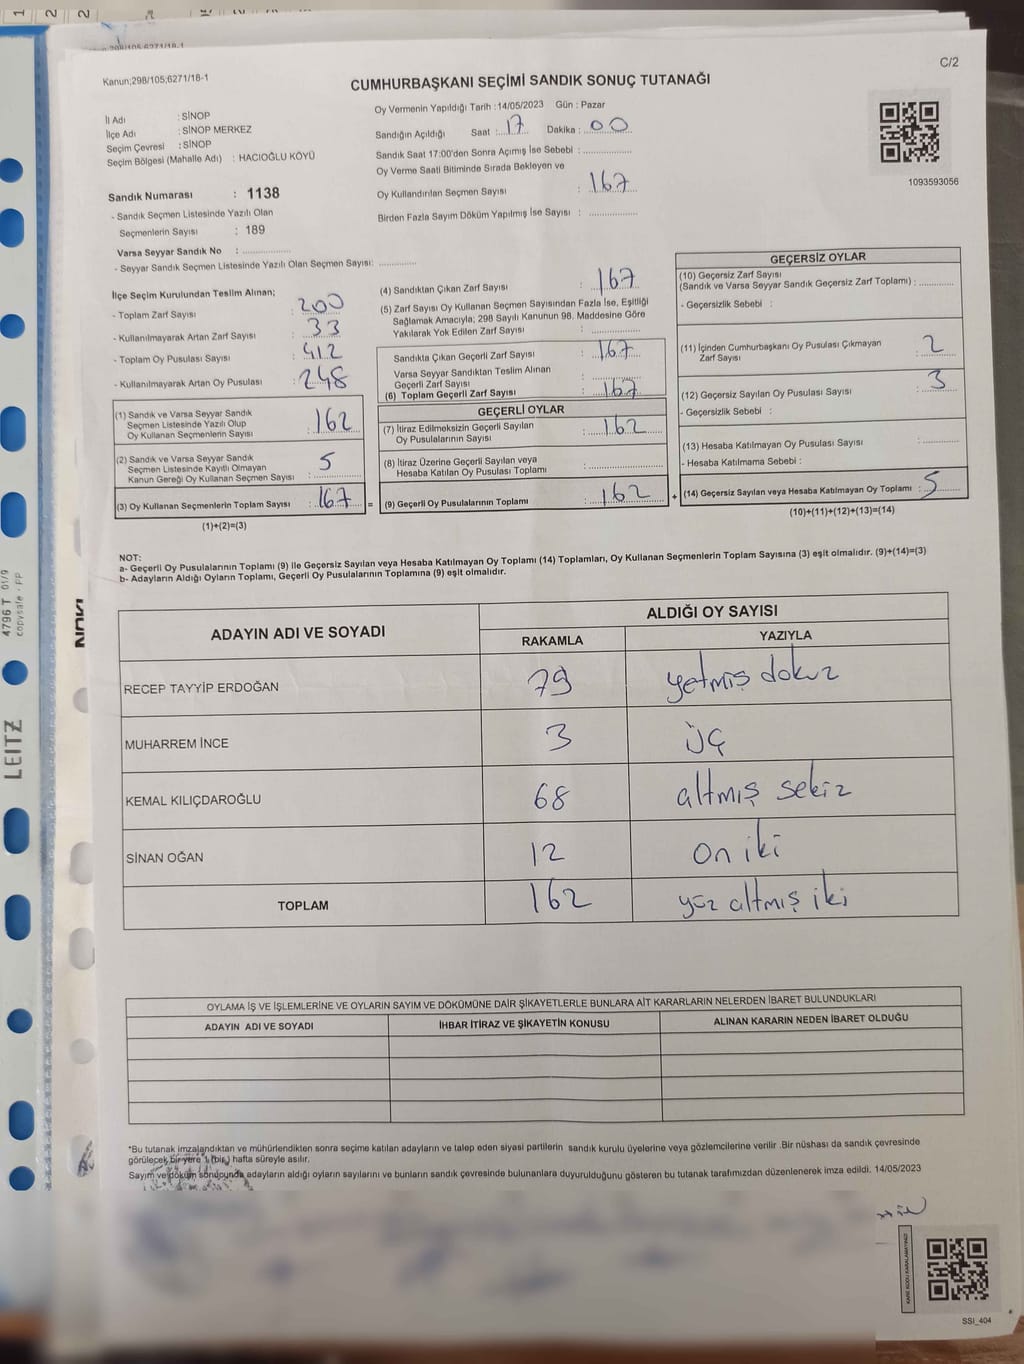 Kanun;298/105;6271/18-1
C/2
CUMHURBAŞKANI SEÇİMİ SANDIK SONUÇ TUTANAĞI
İl Adı : SİNOP
İlçe Adı : SİNOP MERKEZ
Seçim Çevresi : SİNOP
Seçim Bölgesi (Mahalle Adı) : HACIOĞLU KÖYÜ
Sandık Numarası : 1138
- Sandık Seçmen Listesinde Yazılı Olan
Seçmenlerin Sayısı : 189
Varsa Seyyar Sandık No : ..................
- Seyyar Sandık Seçmen Listesinde Yazılı Olan Seçmen Sayısı: .............
Oy Vermenin Yapıldığı Tarih :14/05/2023 Gün : Pazar
Sandığın Açıldığı Saat : 17 Dakika : 00
Sandık Saat 17:00'den Sonra Açımış İse Sebebi : .................
Oy Verme Saati Bitiminde Sırada Bekleyen ve
Oy Kullandırılan Seçmen Sayısı : 167
Birden Fazla Sayım Döküm Yapılmış İse Sayısı : .................
1093593056
İlçe Seçim Kurulundan Teslim Alınan;
- Toplam Zarf Sayısı : 200
- Kullanılmayarak Artan Zarf Sayısı : 33
- Toplam Oy Pusulası Sayısı : 412
- Kullanılmayarak Artan Oy Pusulası : 248
(1) Sandık ve Varsa Seyyar Sandık
Seçmen Listesinde Yazılı Olup
Oy Kullanan Seçmenlerin Sayısı : 162
(2) Sandık ve Varsa Seyyar Sandık
Seçmen Listesinde Kayıtlı Olmayan
Kanun Gereği Oy Kullanan Seçmen Sayısı : 5
(3) Oy Kullanan Seçmenlerin Toplam Sayısı : 167 =
(1)+(2)=(3)
(4) Sandıktan Çıkan Zarf Sayısı : 167
(5) Zarf Sayısı Oy Kullanan Seçmen Sayısından Fazla İse, Eşitliği
Sağlamak Amacıyla; 298 Sayılı Kanunun 98. Maddesine Göre
Yakılarak Yok Edilen Zarf Sayısı : .................
Sandıkta Çıkan Geçerli Zarf Sayısı : 167
Varsa Seyyar Sandıktan Teslim Alınan
Geçerli Zarf Sayısı : .................
(6) Toplam Geçerli Zarf Sayısı : 167
GEÇERLİ OYLAR
(7) İtiraz Edilmeksizin Geçerli Sayılan
Oy Pusulalarının Sayısı : 162
(8) İtiraz Üzerine Geçerli Sayılan veya
Hesaba Katılan Oy Pusulası Toplamı : .................
(9) Geçerli Oy Pusulalarının Toplamı : 162 +
GEÇERSİZ OYLAR
(10) Geçersiz Zarf Sayısı
(Sandık ve Varsa Seyyar Sandık Geçersiz Zarf Toplamı) : ............
- Geçersizlik Sebebi :
(11) İçinden Cumhurbaşkanı Oy Pusulası Çıkmayan
Zarf Sayısı : 2
(12) Geçersiz Sayılan Oy Pusulası Sayısı : 3
- Geçersizlik Sebebi :
(13) Hesaba Katılmayan Oy Pusulası Sayısı : ............
- Hesaba Katılmama Sebebi :
(14) Geçersiz Sayılan veya Hesaba Katılmayan Oy Toplamı : 5
(10)+(11)+(12)+(13)=(14)
NOT:
a- Geçerli Oy Pusulalarının Toplamı (9) ile Geçersiz Sayılan veya Hesaba Katılmayan Oy Toplamı (14) Toplamları, Oy Kullanan Seçmenlerin Toplam Sayısına (3) eşit olmalıdır. (9)+(14)=(3)
b- Adayların Aldığı Oyların Toplamı, Geçerli Oy Pusulalarının Toplamına (9) eşit olmalıdır.
ADAYIN ADI VE SOYADI ALDIĞI OY SAYISI
RAKAMLA YAZIYLA
RECEP TAYYİP ERDOĞAN 79 yetmiş dokuz
MUHARREM İNCE 3 üç
KEMAL KILIÇDAROĞLU 68 altmış sekiz
SİNAN OĞAN 12 on iki
TOPLAM 162 yüz altmış iki
OYLAMA İŞ VE İŞLEMLERİNE VE OYLARIN SAYIM VE DÖKÜMÜNE DAİR ŞİKAYETLERLE BUNLARA AİT KARARLARIN NELERDEN İBARET BULUNDUKLARI
ADAYIN ADI VE SOYADI İHBAR İTİRAZ VE ŞİKAYETİN KONUSU ALINAN KARARIN NEDEN İBARET OLDUĞU
*Bu tutanak imzalandıktan ve mühürlendikten sonra seçime katılan adayların ve talep eden siyasi partilerin sandık kurulu üyelerine veya gözlemcilerine verilir .Bir nüshası da sandık çevresinde
görülecek bir yere 1 (bir) hafta süreyle asılır.
Sayım ve döküm sonucunda adayların aldığı oyların sayılarını ve bunların sandık çevresinde bulunanlara duyurulduğunu gösteren bu tutanak tarafımızdan düzenlenerek imza edildi. 14/05/2023
KARE KODU KARALAMAYINIZ!
SSI_404
LEITZ
4796 T 01/9
copysafe - PP